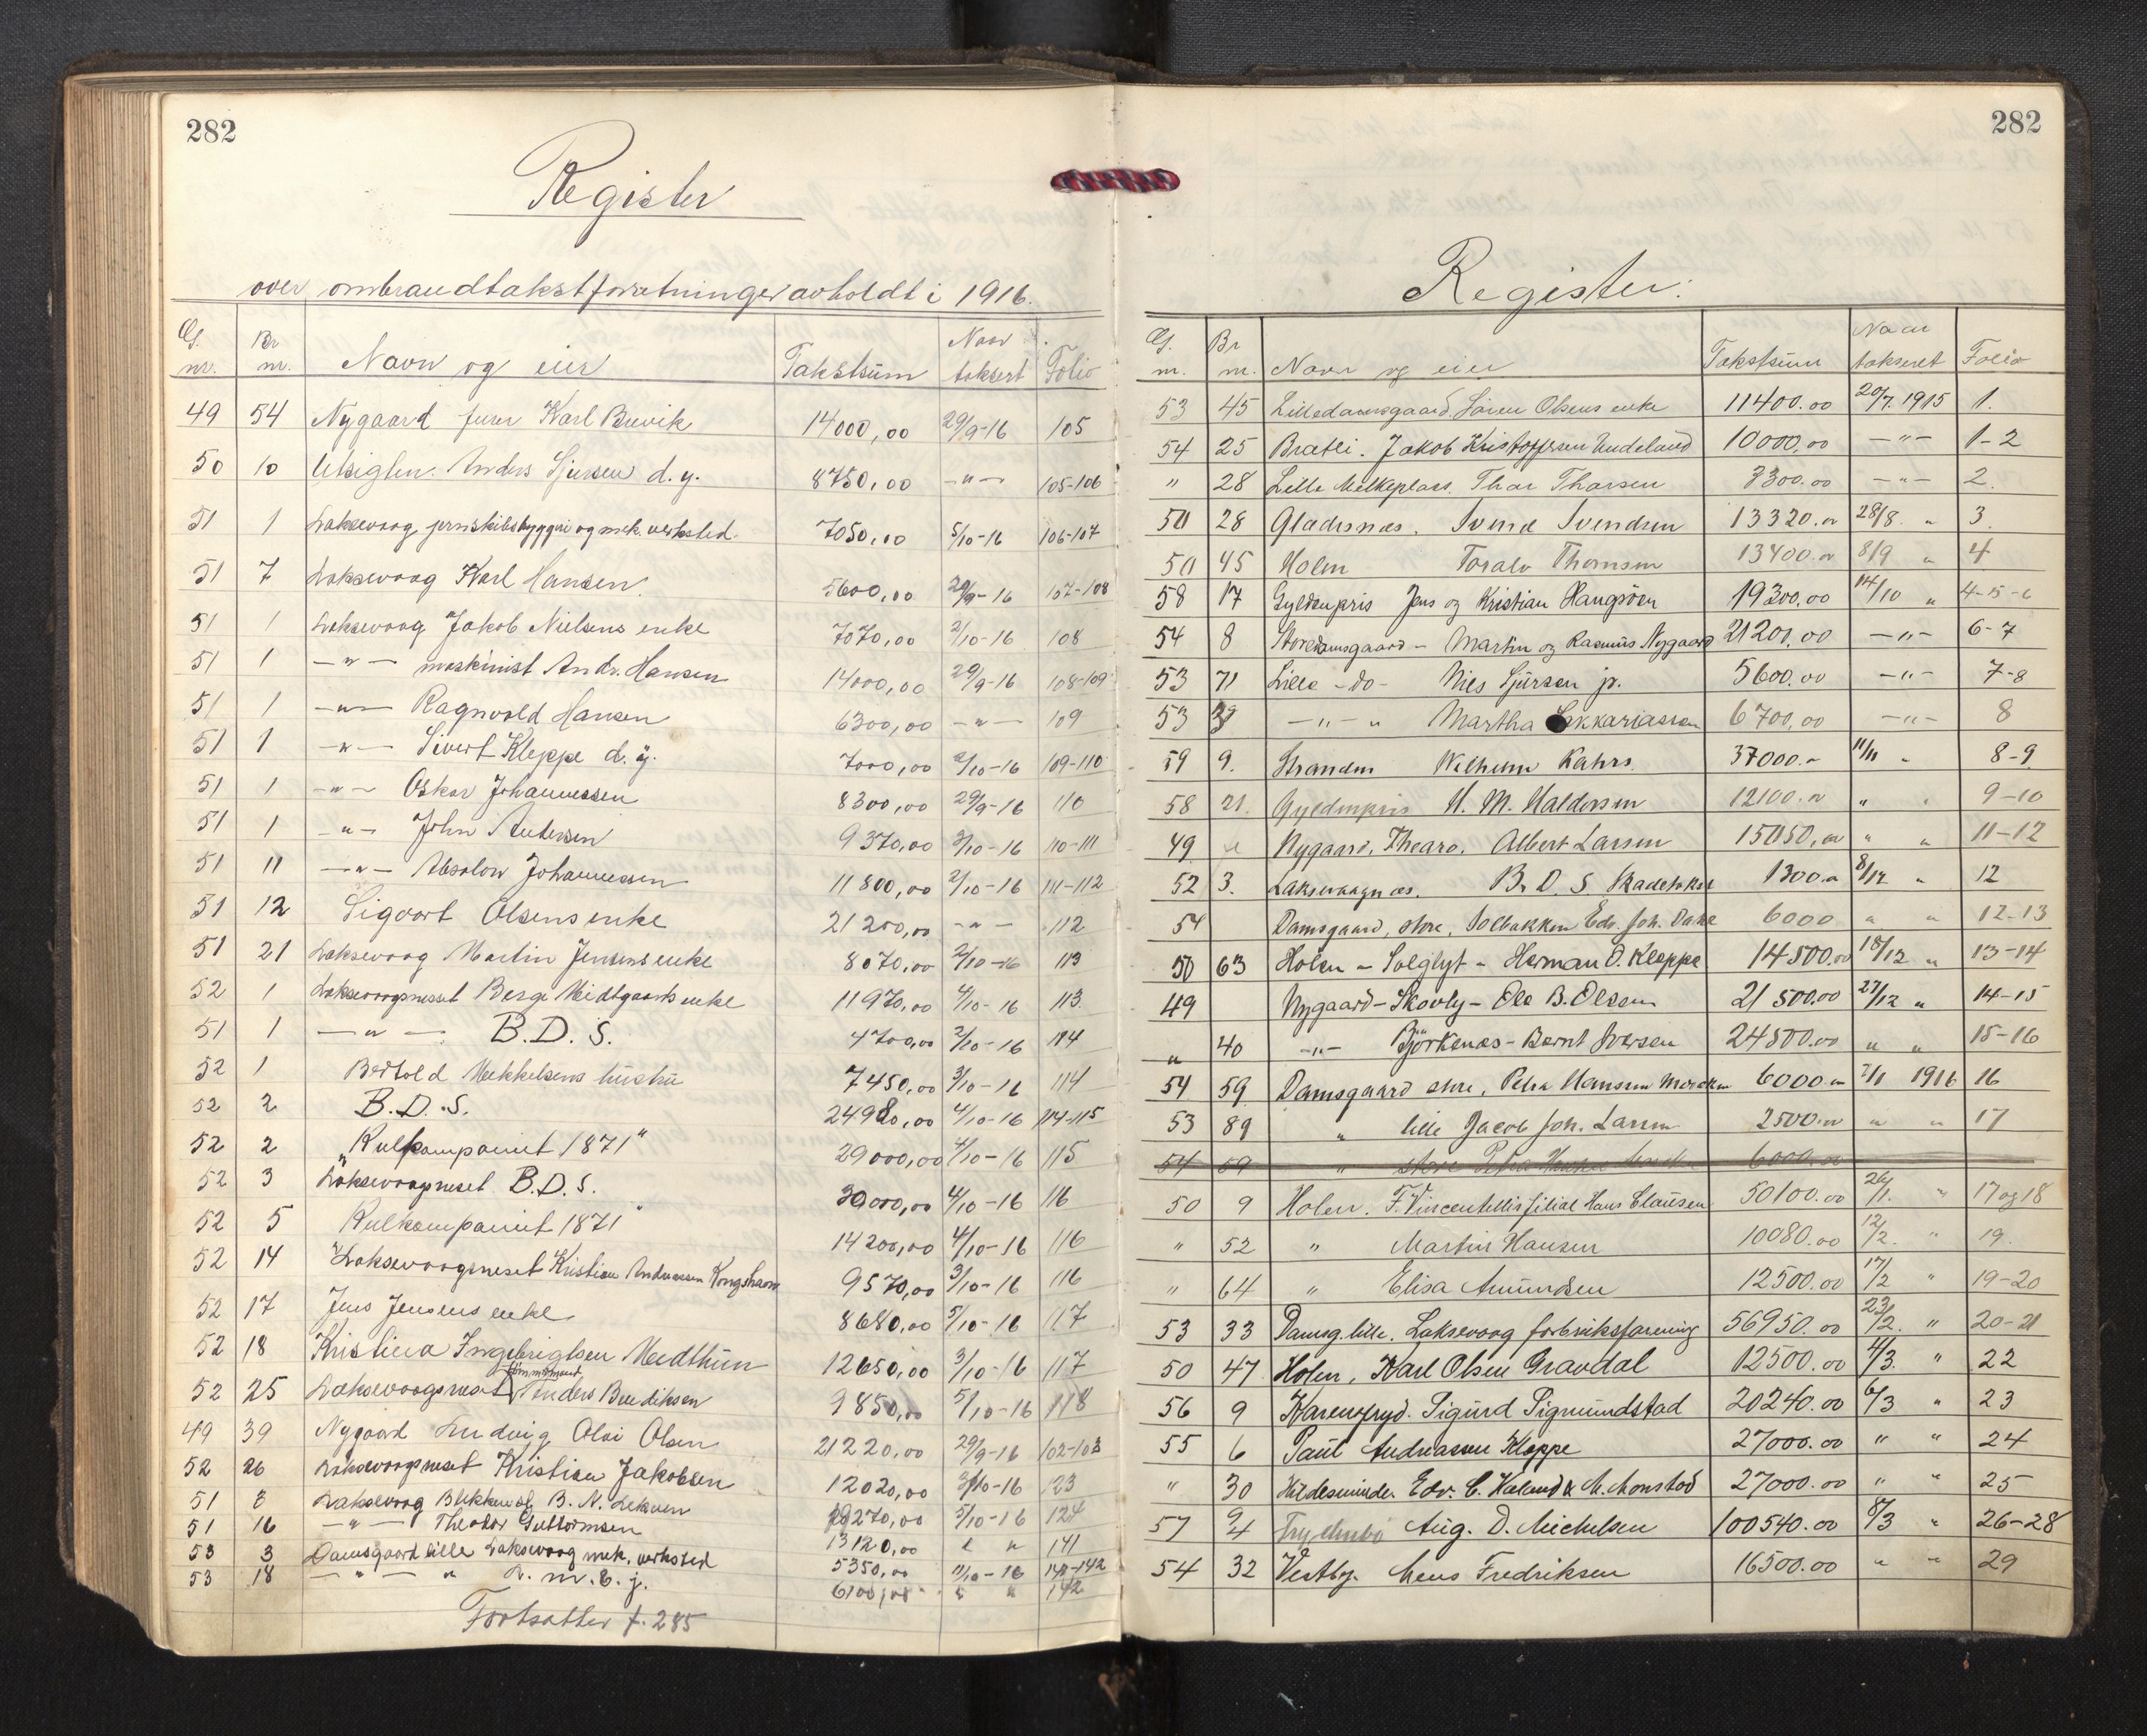 282
Register
over ombrandtakstforretninger avholdt i 1916.
G. nr. Br nr. Navn og eier Takstsum Naar taksert Folio
49 54 Nygaard furer Karl Brevik 14000,00 29/9-16 105
50 10 Utsigten. Anders Sjursen d.y. 8750,00 -"- 105-106
51 1 Laksevaag jernskibsbyggeri og mek. verksted. 7050,00 5/10-16 106-107
51 7 Laksevaag Karl Hansen. 5600,00 29/9-16 107-108
51 1 Laksevaag Jakob Nielsens enke 7070,00 2/10-16 108
51 1 -"- maskinist Andr. Hansen 14000,00 29/9-16 108-109
51 1 -"- Ragnvald Hansen 6300,00 -"- 109
51 1 -"- Sivert Kleppe d.y. 7000,00 2/10-16 109-110
51 1 -"- Oskar Johannessen 8300,00 29/9-16 110
51 1 -"- John Andersen 9370,00 3/10-16 110-111
51 11 -"- Absolon Johannessen 11800,00 2/10-16 111-112
51 12 Sigvart Olsens enke 21200,00 -"- 112
51 21 Laksevaag Martin Jensens enke 8070,00 2/10-16 113
52 1 Laksevaagneset Berge Midtgaards enke 11970,00 4/10-16 113
51 1 -"- B.D.S. 4700,00 2/10-16 114
52 1 Bertold Mekkelsens hustru 7450,00 3/10-16 114
52 2 B.D.S. 24980,00 4/10-16 114-115
52 2 „Kulkompaniet 1871" 29000,00 4/10-16 115
52 3 Laksevaagneset B.D.S. 30000,00 4/10-16 116
52 5 Kulkompaniet 1871" 14200,00 4/10-16 116
52 14 Laksevaagneset Kristian Andreassen Kongshavn 9570,00 3/10-16 116
52 17 Jens Jensens enke 8680,00 5/10-16 117
52 18 Kristina Ingebrigtsen Medthun 12650,00 3/10-16 117
52 25 Laksevaagsneset tømmermand Anders Bendiksen 9850,00 5/10-16 118
49 39 Nygaard Ludvig Olai Olsen 21220,00 29/9-16 102-103
52 26 Laksevaagneset Kristian Jakobsen 12020,00 3/10-16 123
51 8 Laksevaag Blikkensl. B. N. Leknen 19270,00 5/10-16 124
51 16 -"- Theodor Guttormsen 13120,00 " " 141
53 3 Damsgaard lille Laksevaag mek. verksted 5350,00 11/10-16 141-142
53 18 -"- " L. m. & j. 6100,00 " " 142
Fortsætter f. 285
282
Register.
G. nr. Br nr. Navn og eier Takstsum Naar takseret Folio
53 45 Lilledamsgaard Søren Olsens enke 11400.00 20/7.1915 1.
54 25 Bratli. Jakob Kristoffersen Indeland 10000,00 -"- 1-2
" 28 Lille Melkeplass. Thor Thorsen 3300.00 -"- 2.
50 28 Gladesnæs. Svend Svendsen 13320.00 28/8. " 3
50 45 Holen Toralv Thomsen 13400.00 8/9 " 4
58 17 Gyldenpris Jens og Kristian Haugsøen 19300,00 14/10 " 4-5-6
54 8 Storedamsgaard - Martin og Rasmus Nygaard 21200,00 -"- 6-7
53 71 Lille -do- Nils Sjursen jr. 5600.00 -"- 7-8
53 39 -"- " Martha Sakkariassen 6700,00 -"- 8
59 9. Stranden Wilhelm Kahrs. 37000.- 11/11 " 8-9
58 21. Gyldenpris H. M. Haldorsen 12100.00 " " 9-10
49 Nygaard, Thearo. Albert Larsen 15050,00 " " 11-12
52 3. Laksevaagnæs. B. D. S Skadetakst 1300.00 8/12 " 12
54 Damsgaard, store, Solbakken Edv. Joh. Dahle 6000 " " 12-13
50 63 Holen - Solglyt - Herman O. Kleppe 14500.00 18/12 " 13-14
49 Nygaard - Skovly - Ole B. Olsen 21500.00 27/12 " 14-15
" 40 -"- Björkenæs - Bernt Iversen 24800.00 " " 15-16
54 59 Damsgaard store, Petra Hansen 6000.00 7/1 1916 16
53 89 " lille Jacob Joh. Larsen 2500.00 " " 17
54 59 " store Petra Hansen 6000.00
50 9 Holen. F. Vincentellis filial Hans Clausen 50100.00 26/1. " 17 og 18
" 52 " Martin Hansen 10080.00 12/2. " 19.
" 64 " Elisa Amundsen 12500.00 17/2 " 19-20
53 33 Damsg. lille. Laksevaag forbruksforening 56950.00 23/2. " 20-21
50 47 Holen, Karl Olsen Gravdal 12500.00 4/3. " 22
56 9 Karensfryd. Sigurd Sigmundstad 20240.00 6/3 " 23
55 6 Paul Andreassen Kleppe 27000.00 " " 24
" 30 Hildesminde. Edv. C. Kaland & M. Monstad 27000.00 " " 25
57 9/4 Aug. D. Michelsen 100540.00 8/3 " 26-28
54 32 Vestby. Mens Fredriksen 16500.00 " " 29